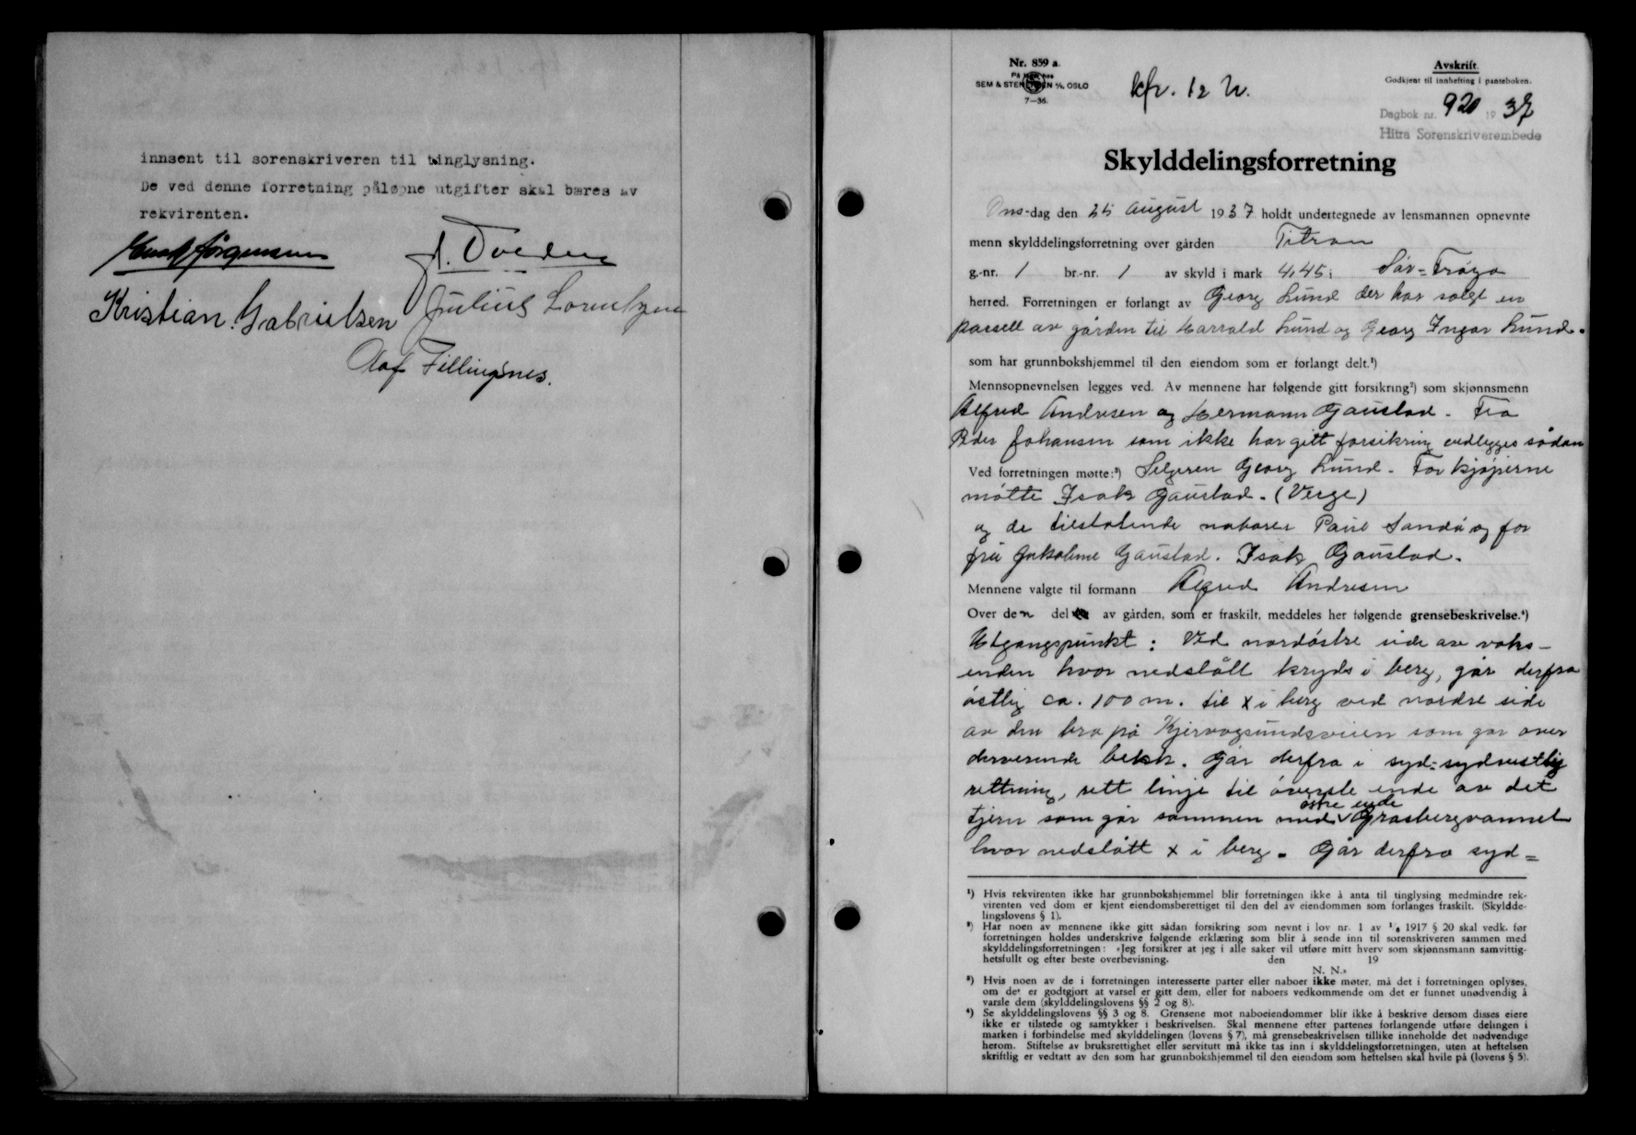 innsent til sorenskriveren til tinglysning.
De ved denne forretning påløpne utgifter skal bæres av
rekvirenten.
Jørgensen
Kristian Gabrielsen
Julius Lorentzen
Olaf Fillingsnes.
Nr. 859 a.
SEM & STENERSEN A/S, OSLO
7—36.
kfr. 12 N.
Avskrift.
Godkjent til innhefting i panteboken.
Dagbok nr. 920 1937
Hitra Sorenskriverembede
Skylddelingsforretning
Ons-dag den 25 august 1937 holdt undertegnede av lensmannen opnevnte
menn skylddelingsforretning over gården Titran
g.-nr. 1 br.-nr. 1 av skyld i mark 4,45 i Sør-Frøya
herred. Forretningen er forlangt av Georg Lund der har solgt en
parsell av gården til Harrald Lund og Georg Ingar Lund.
som har grunnbokshjemmel til den eiendom som er forlangt delt.¹)
Mennsopnevnelsen legges ved. Av mennene har følgende gitt forsikring²) som skjønnsmenn
Alfred Andresen og Hermann Gaustad. Fra
Peder Johansen som ikke har gitt forsikring vedlegges sådan
Ved forretningen møtte:³) Selgeren Georg Lund. For kjøperne
møtte Isak Gaustad. (Verge)
og de tilstøtende naboer Paul Sandø og for
fru Gaustad. Isak Gaustad.
Mennene valgte til formann Alfred Andresen
Over den del av gården, som er fraskilt, meddeles her følgende grensebeskrivelse.⁴)
Utgangspunkt: Ved nordøstre side av
enden hvor nedslått kryds i berg, går derfra
østlig ca. 100 m. til x i berg ved nordre side
av den bro på Kjervågsundsveien som går over
derværende bekk. Går derfra i syd-sydvestlig
rettning, rett linje til øverste ende av det
tjern som går sammen med østre ende Grasbergvannet
hvor nedslått x i berg. Går derfra syd=
¹) Hvis rekvirenten ikke har grunnbokshjemmel blir forretningen ikke å anta til tinglysing medmindre rek-
virenten ved dom er kjent eiendomsberettiget til den del av eiendommen som forlanges fraskilt. (Skyldde-
lingslovens § 1).
²) Har noen av mennene ikke gitt sådan forsikring som nevnt i lov nr. 1 av 1917 § 20 skal vedk. før
forretningen holdes underskrive følgende erklæring som blir å sende inn til sorenskriveren sammen med
skylddelingsforretningen: «Jeg forsikrer at jeg i alle saker vil utføre mitt hverv som skjønnsmann samvittig-
hetsfullt og efter beste overbevisning. den 19
N. N.»
³) Hvis noen av de i forretningen interesserte parter eller naboer ikke møter, må det i forretningen oplyses,
om det er godtgjort at varsel er gitt dem, eller for naboers vedkommende om det er funnet unødvendig å
varsle dem (skylddelingslovens §§ 2 og 8).
⁴) Se skylddelingslovens §§ 3 og 8. Grensene mot naboeiendommer blir ikke å beskrive dersom disses eiere
ikke er tilstede og samtykker i beskrivelsen. Skal mennene efter partenes forlangende utføre delingen i
marken i forbindelse med skylddelingen (lovens § 7), må grensebeskrivelsen tillike inneholde det nødvendige
herom. Stiftelse av bruksrettighet eller servitutt må ikke tas inn i skylddelingsforretningen, uten at heftelsen
skriftlig er vedtatt av den som har grunnbokshjemmel til den eiendom som heftelsen skal hvile på (lovens § 5).